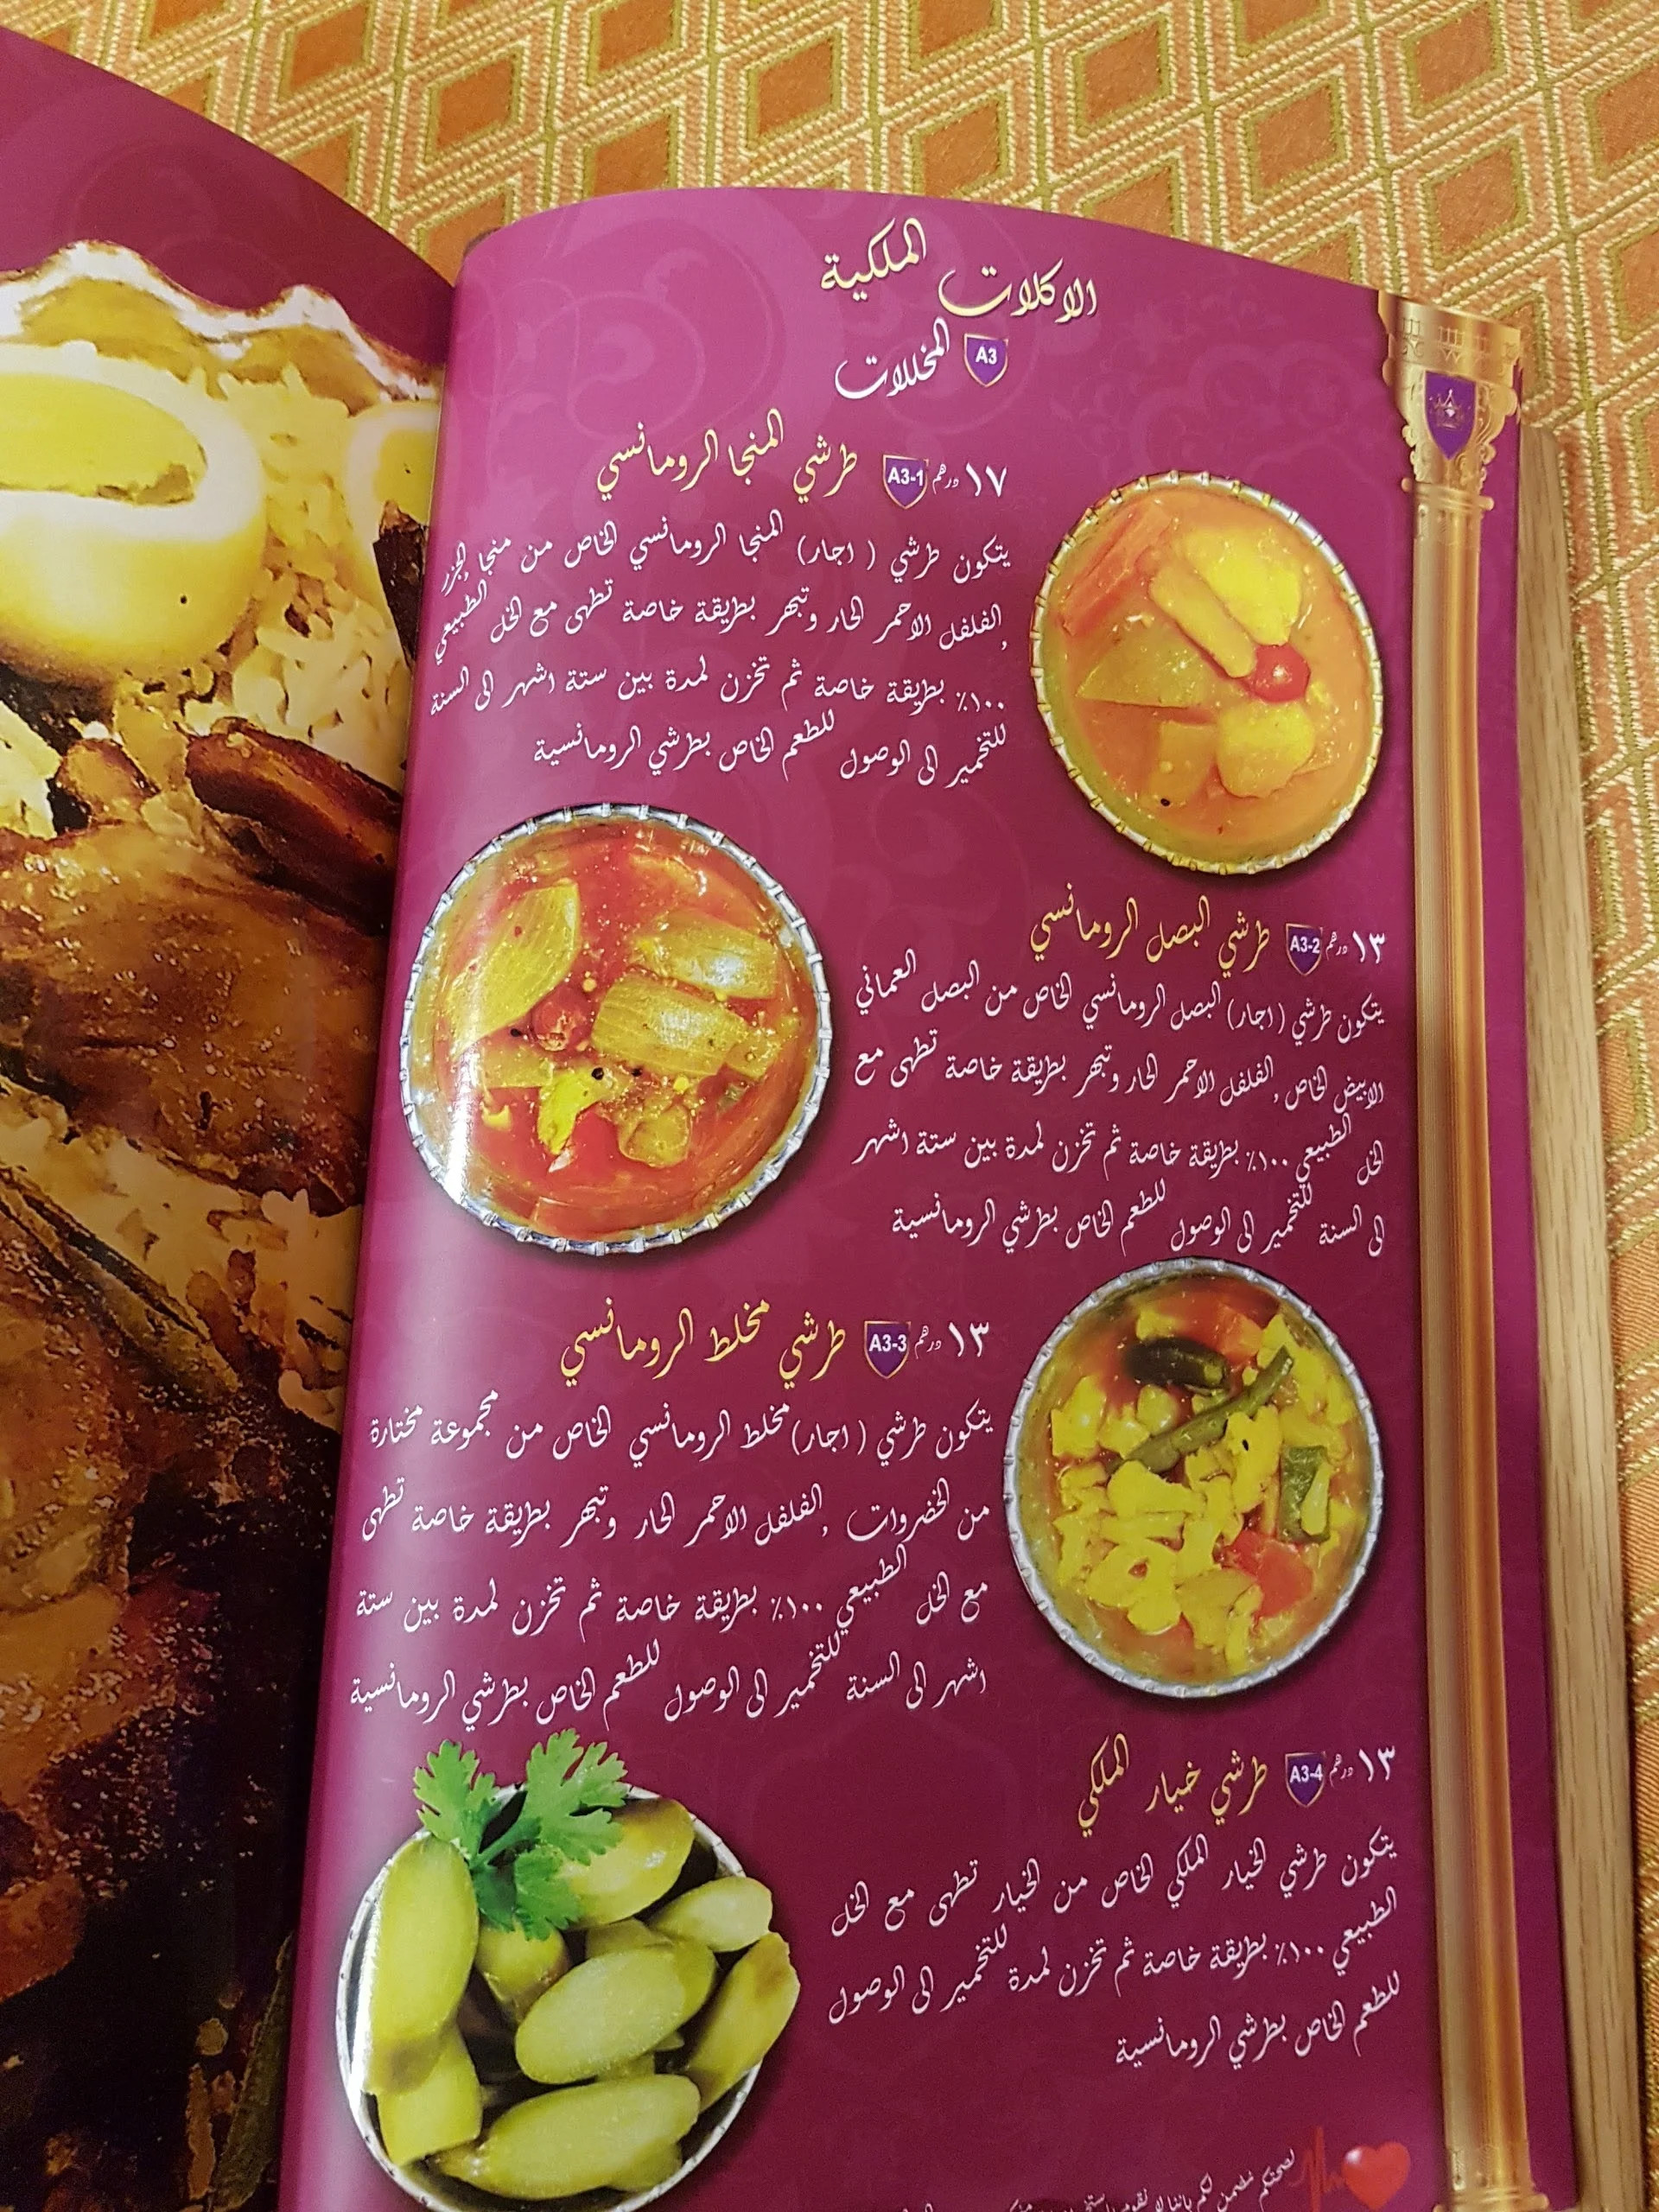 الاكلات الملكية
A3 المخللات
١٧ درهم A3-1 طرشي المنجا الرومانسي
يتكون طرشي (اجار) المنجا الرومانسي الخاص من منجا,الجزر
,الفلفل الاحمر الحار وتبهر بطريقة خاصة تطهى مع الخل الطبيعي
١٠٠٪ بطريقة خاصة ثم تخزن لمدة بين ستة اشهر الى السنة
للتخمير الى الوصول للطعم الخاص بطرشي الرومانسية
١٣ درهم A3-2 طرشي البصل الرومانسي
يتكون طرشي (اجار) البصل الرومانسي الخاص من البصل العماني
الابيض الخاص ,الفلفل الاحمر الحار وتبهر بطريقة خاصة تطهى مع
الخل الطبيعي ١٠٠٪ بطريقة خاصة ثم تخزن لمدة بين ستة اشهر
الى السنة للتخمير الى الوصول للطعم الخاص بطرشي الرومانسية
١٣ درهم A3-3 طرشي مخلط الرومانسي
يتكون طرشي (اجار) مخلط الرومانسي الخاص من مجموعة مختارة
من الخضروات ,الفلفل الاحمر الحار وتبهر بطريقة خاصة تطهى
مع الخل الطبيعي ١٠٠٪ بطريقة خاصة ثم تخزن لمدة بين ستة
اشهر الى السنة للتخمير الى الوصول للطعم الخاص بطرشي الرومانسية
١٣ درهم A3-4 طرشي خيار الملكي
يتكون طرشي الخيار الملكي الخاص من الخيار تطهى مع الخل
الطبيعي ١٠٠٪ بطريقة خاصة ثم تخزن لمدة للتخمير الى الوصول
للطعم الخاص بطرشي الرومانسية
لصحتكم نضمن لكم باننا لا نقوم